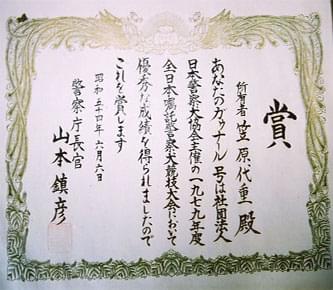 賞
所有者 笠原代重 殿
あなたのガヴァナール号は社団法人
日本警察犬協会主催の一九七九年度
全日本嘱託警察犬競技大会において
優秀な成績を得られましたので
これを賞します
昭和五十四年六月六日
警察庁長官
山本鎮彦